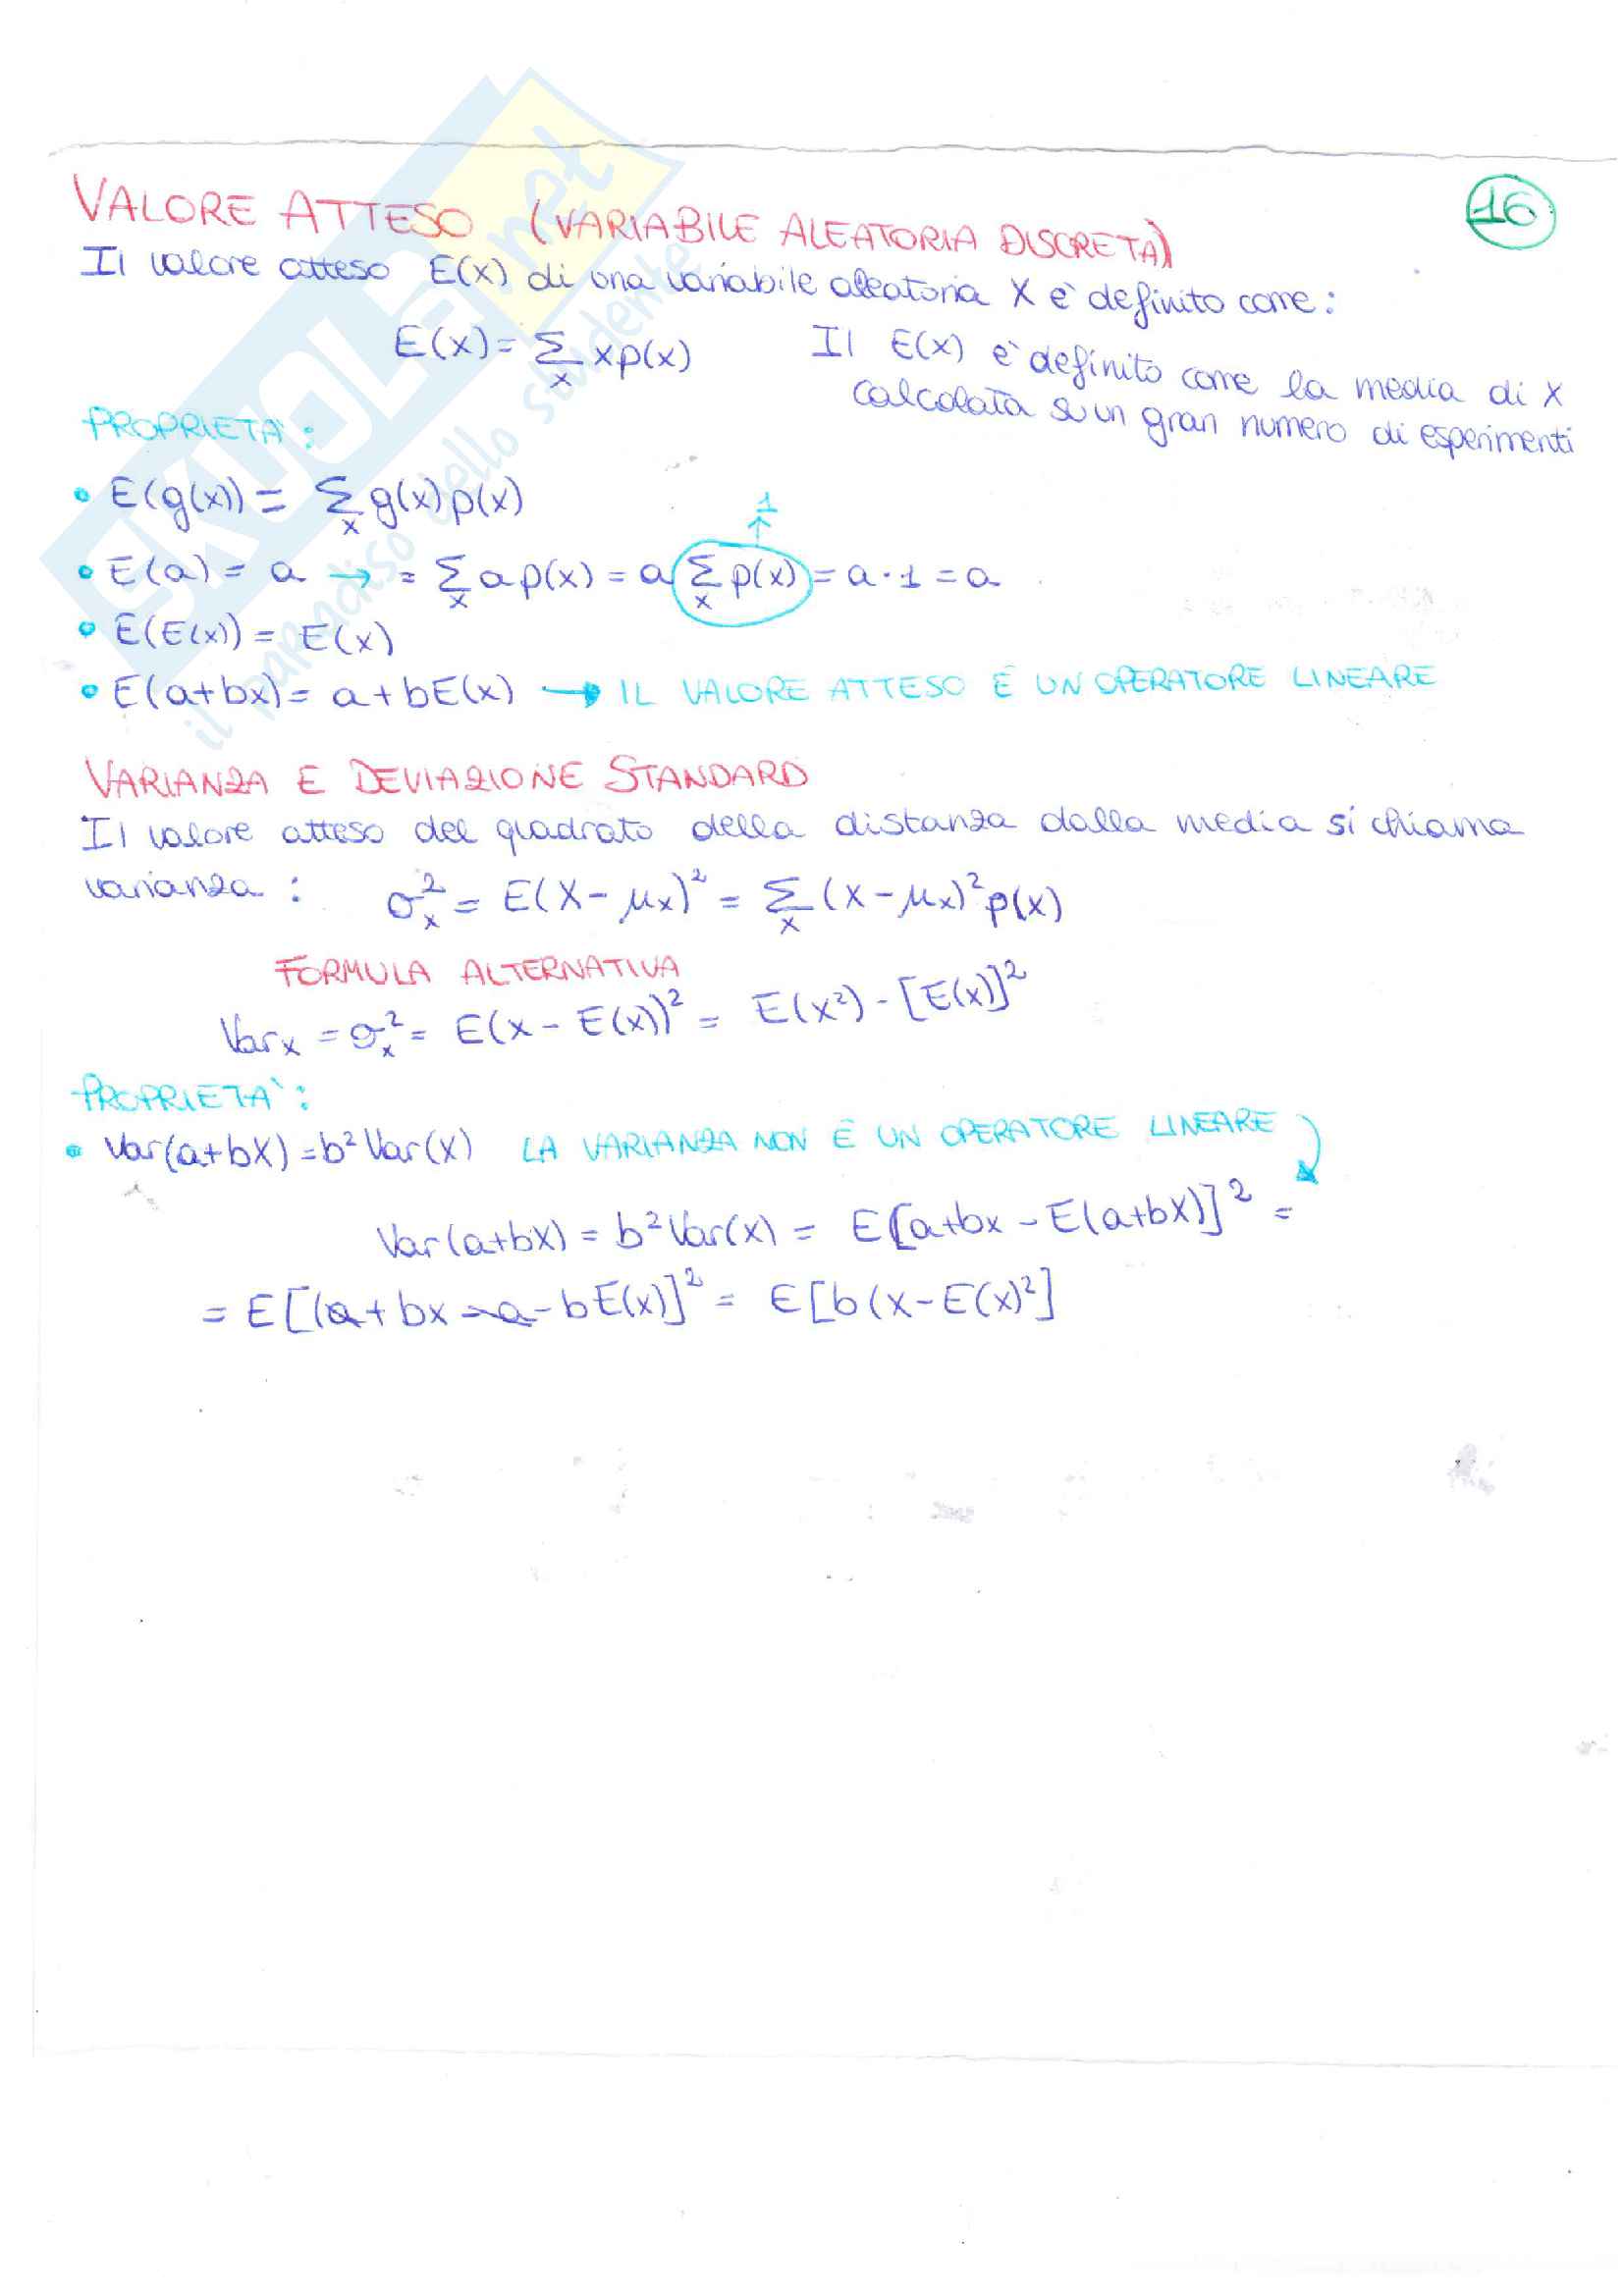 16
VALORE ATTESO (VARIABILE ALEATORIA DISCRETA)
Il valore atteso E(x) di una variabile aleatoria X è definito come:
E(x) = Σ_x xp(x)
Il E(x) è definito come la media di X
calcolata su un gran numero di esperimenti
PROPRIETÀ:
• E(g(x)) = Σ_x g(x)p(x)
1
• E(a) = a → = Σ_x a p(x) = a Σ_x p(x) = a·1 = a
• E(E(x)) = E(x)
• E(a+bx) = a+bE(x) → IL VALORE ATTESO È UN OPERATORE LINEARE
VARIANZA E DEVIAZIONE STANDARD
Il valore atteso del quadrato della distanza dalla media si chiama
varianza: σ²_x = E(X-μ_x)² = Σ_x (x-μ_x)² p(x)
FORMULA ALTERNATIVA
Var_x = σ²_x = E(x - E(x))² = E(x²) - [E(x)]²
PROPRIETÀ:
• Var(a+bX) = b² Var(x) LA VARIANZA NON È UN OPERATORE LINEARE
Var(a+bX) = b² Var(x) = E[a+bx - E(a+bX)]² =
= E[(a+bx-a-bE(x)]² = E[b(x-E(x)²]
SKUOLA.net
il paradiso dello studente